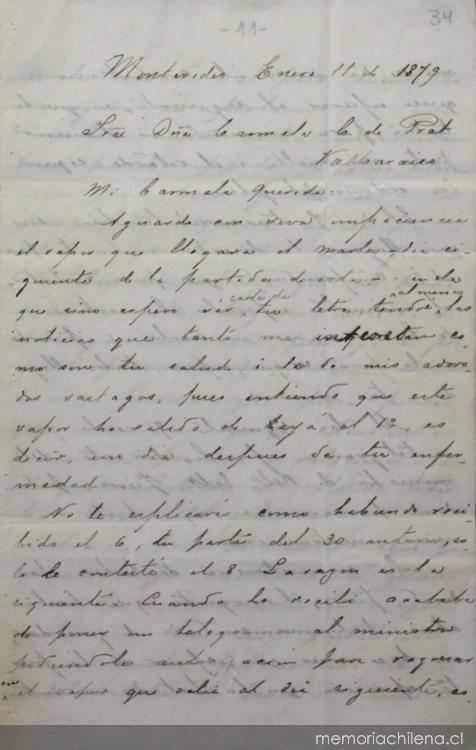 -11-
34
Montevideo Enero 11 de 1879
Sra Dña Carmela C. de Prat
Valparaiso
Mi Carmela Querida:
Aguardo con viva impaciencia
el vapor que llegara el martes, dia si-
guiente de la partida de esta, en la
que sino espero ver carta de tu letra, tendré al menos las
noticias que tanto me interesan co-
mo son tu salud i la de mis adora-
dos vastagos, pues entiendo que este
vapor ha salido de haya el 1º, es
decir, un dia despues de tu enfer-
medad
No te esplicarás como habiendo reci-
bido el 6, tu parte del 30 anterior, so
lo le contesté el 8. La razon es la
siguiente: Cuando lo recibi acababa
de poner un telegrama al ministro
pidiendole autorizacion para regresar
en el vapor que salia al dia siguiente, es
memoriachilena.cl